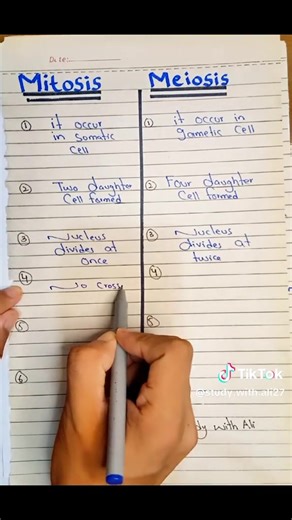 Date:
Mitosis
Meiosis
① it occur
in somatic
Cell
① it occur in
gametic cell
② Two daughter
Cell formed
② Four daughter
Cell formed
③ Nucleus
divides at
once
③ Nucleus
divides at
twice
④
No cross
④
⑤
⑤
⑥
TikTok
@study.with.ali27
dy with Ali